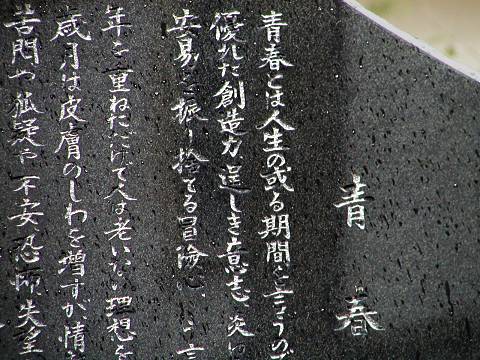 青春
青春とは人生の或る期間を言うので
優れた創造力逞しき意志炎の
安易を振り捨てる冒険心
年を重ねただけで人は老いない理想を
歳月は皮膚のしわを増すが情
苦悶や狐疑や不安恐怖失望